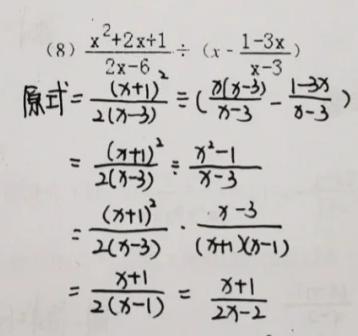 (8) \frac{x^2+2x+1}{2x-6} ÷ (x - \frac{1-3x}{x-3})
原式 = \frac{(x+1)^2}{2(x-3)} ÷ (\frac{x(x-3)}{x-3} - \frac{1-3x}{x-3})
= \frac{(x+1)^2}{2(x-3)} ÷ \frac{x^2-1}{x-3}
= \frac{(x+1)^2}{2(x-3)} · \frac{x-3}{(x+1)(x-1)}
= \frac{x+1}{2(x-1)} = \frac{x+1}{2x-2}